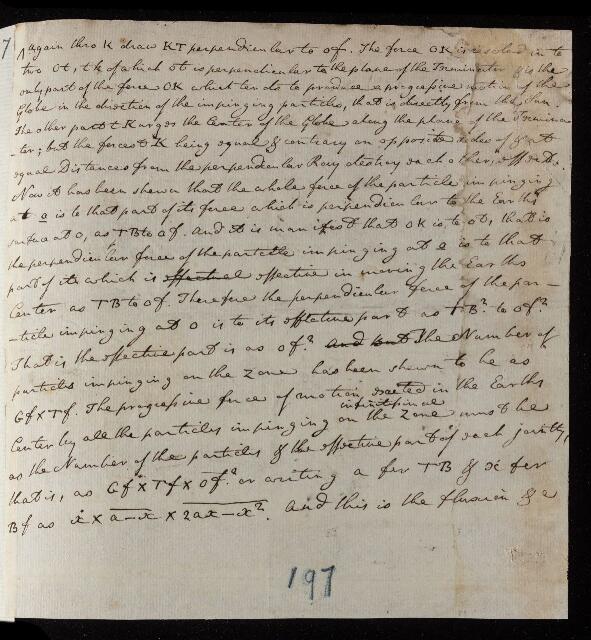 7 Again thro K draw KT perpendicular to Of. The force OK is resolved into
two Ot, tK of which Ot is perpendicular to the plane of the Terminator & is the
only part of the force OK which tends to produce a progressive motion of the
Globe in the direction of the impinging particles, that is directly from the Sun.
The other part tK urges the Center of the Globe along the plane of the Termina
-ter; but the forces tK being equal & contrary on opposite sides of & at
equal Distances from the perpendicular Ray destroy each other's effect.
Now it has been shewn that the whole force of the particle impinging
at a is to that part of its force which is perpendicular to the Earth's
surface at O, as TB to Of. And it is manifest that OK is to Ot, that is
the perpendicular force of the particle impinging at e is to that
part of it which is effectual effective in moving the Earths
Center as TB to Of. Therefore the perpendicular force of the par-
-ticle impinging at O is to its effective part as TB² to Of²
That is the effective part is as Of² And but The Number of
particles impinging on the Zone has been shewn to be as
Gf×Tf. The progressive force of motion exerted in the Earths
infinitesimal
Center by all the particles impinging on the Zone must be
as the Number of the particles & the effective part of each jointly,
that is, as Gf×Tf×Of² or writing a for TB & x for
Bf as ẋ × a-x × 2ax-x². And this is the fluxion &c
197